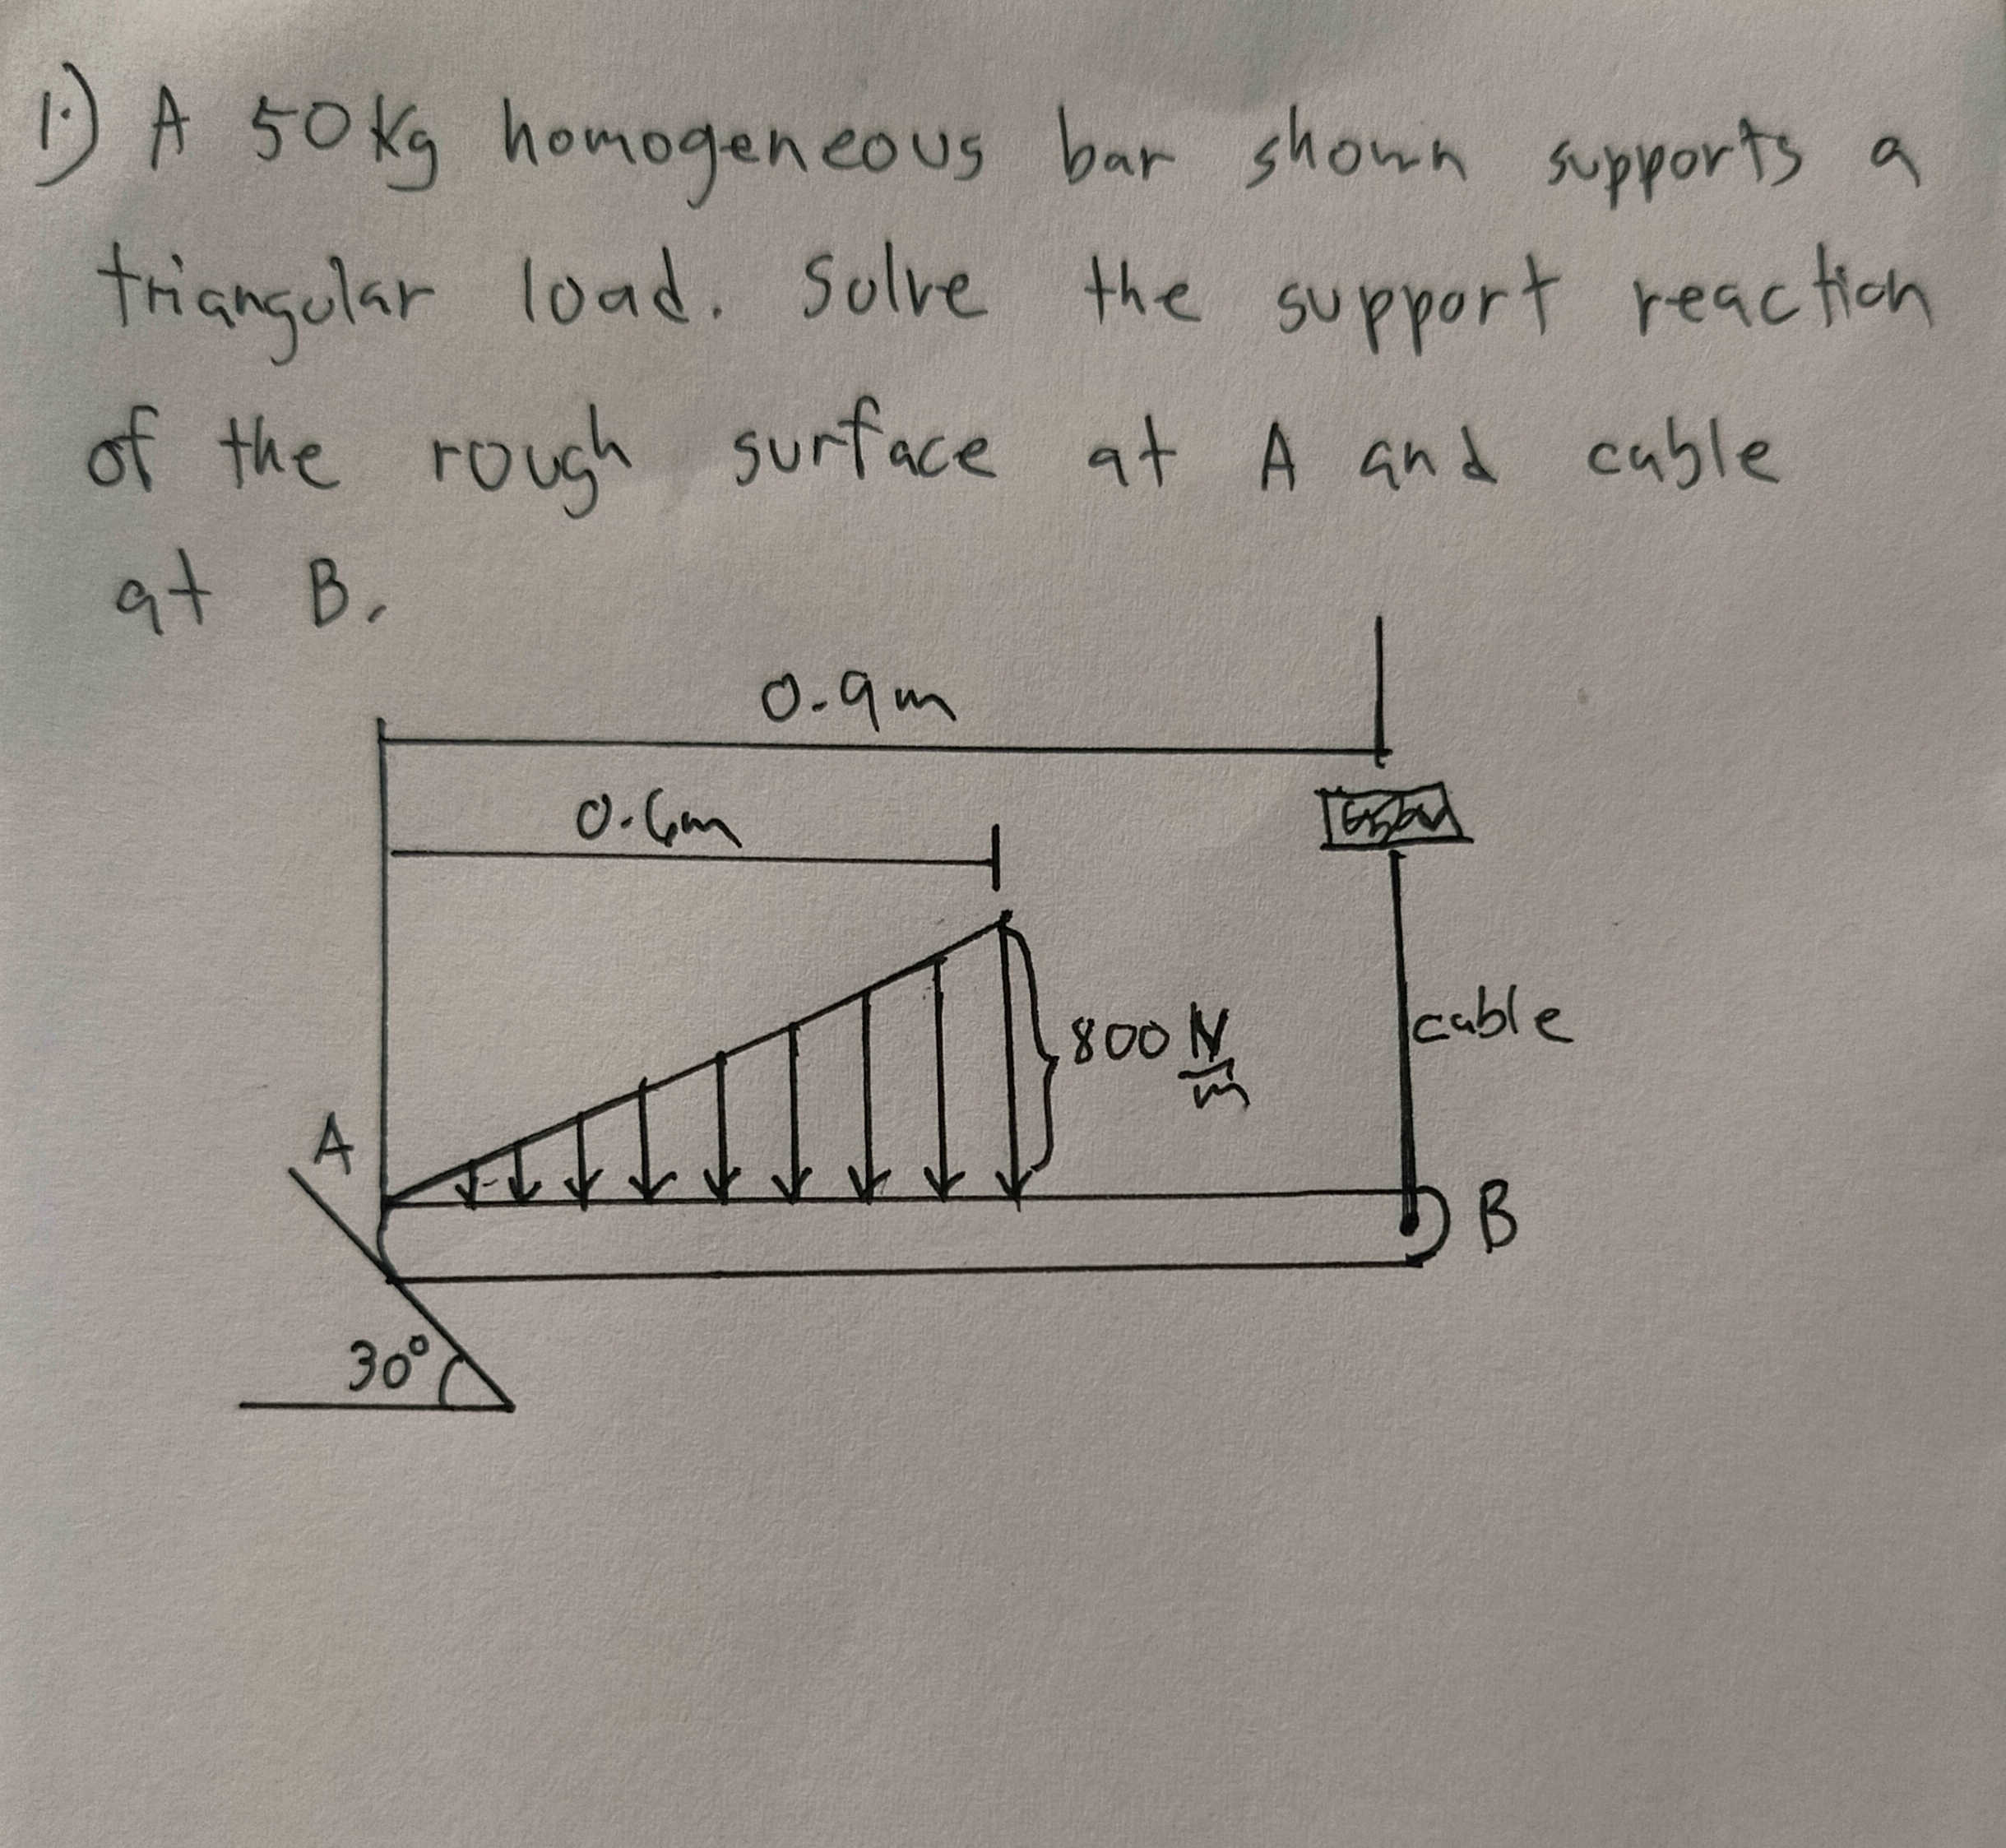 1.) A 50 Kg homogeneous bar shown supports a
triangular load. Solve the support reaction
of the rough surface at A and cable
at B.
0.9m
0.6m
800 N/m
cable
A
B
30°